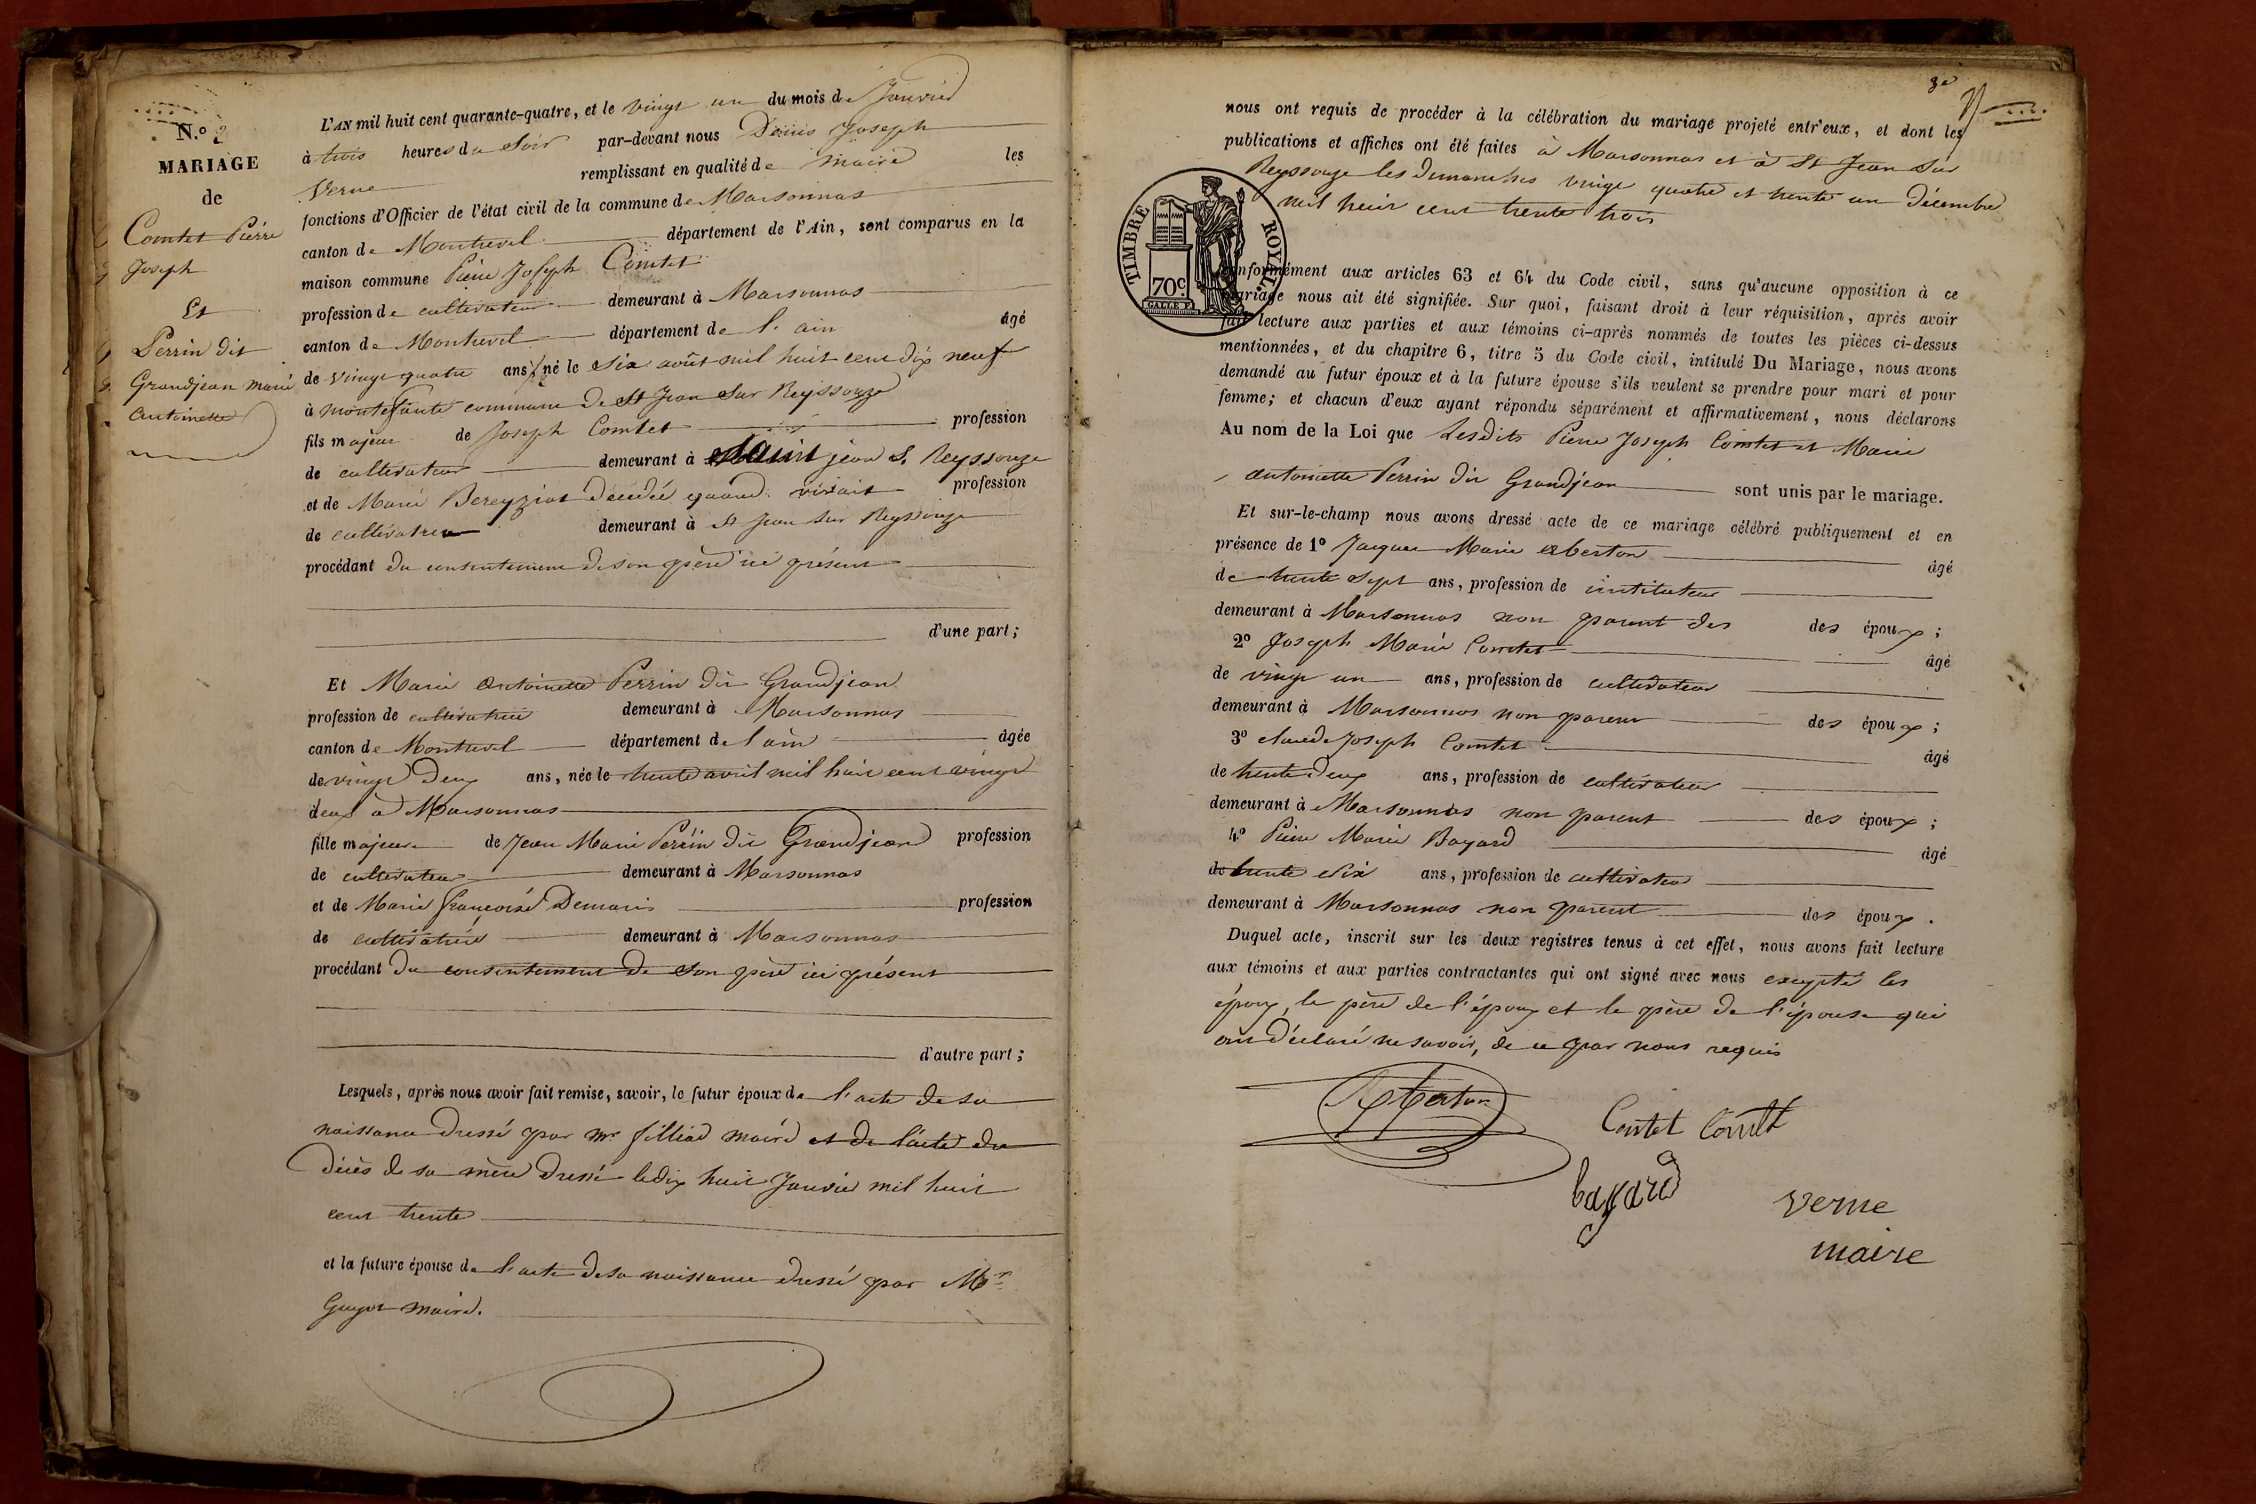 N.º 2
MARIAGE
de
Comtet Pierre
Joseph
Et
Perrin dit
Grandjean marie
antoinette
L'AN mil huit cent quarante-quatre, et le vingt un du mois de Janvier
à trois heures du Soir par-devant nous Denis Joseph
Verne remplissant en qualité de maire les
fonctions d'Officier de l'état civil de la commune de Marsonnas
canton de Montrevel département de l'Ain, sont comparus en la
maison commune Pierre Joseph Comtet
profession de cultivateur demeurant à Marsonnas
canton de Montrevel département de l'ain âgé
de vingt quatre ans, né le Six août mil huit cent dix neuf
à montefanté commune de St Jean Sur Reyssouze
fils majeur de Joseph Comtet profession
de cultivateur demeurant à Saint jean S. Reyssouze
et de Marie Bereyziat décédée quand vivait profession
de cultivatrice demeurant à St Jean Sur Reyssouze
procédant du consentement de son père ici présent
d'une part;
Et Marie antoinette Perrin dit Grandjean
profession de cultivatrice demeurant à Marsonnas
canton de Montrevel département de l'ain âgée
de vingt deux ans, née le trente avril mil huit cent vingt
deux à Marsonnas
fille majeure de Jean Marie Perrin dit Grandjean profession
de cultivateur demeurant à Marsonnas
et de Marie françoise Demaris profession
de cultivatrice demeurant à Marsonnas
procédant du consentement de son père ici présent
d'autre part;
Lesquels, après nous avoir fait remise, savoir, le futur époux de l'acte de sa
naissance dressé par mr filliod maire et de l'acte du
décès de sa mère dressé le dix huit Janvier mil huit
cent trente
et la future épouse de l'acte de sa naissance dressé par Mr
Guyot maire.
3e
nous ont requis de procéder à la célébration du mariage projeté entr'eux, et dont les
publications et affiches ont été faites à Marsonnas et à St Jean Sur
Reyssouze les dimanches vingt quatre et trente un décembre
mil huit cent trente trois
TIMBRE ROYAL
70c
GALLE F.
conformément aux articles 63 et 64 du Code civil, sans qu'aucune opposition à ce
mariage nous ait été signifiée. Sur quoi, faisant droit à leur réquisition, après avoir
fait lecture aux parties et aux témoins ci-après nommés de toutes les pièces ci-dessus
mentionnées, et du chapitre 6, titre 5 du Code civil, intitulé Du Mariage, nous avons
demandé au futur époux et à la future épouse s'ils veulent se prendre pour mari et pour
femme; et chacun d'eux ayant répondu séparément et affirmativement, nous déclarons
Au nom de la Loi que Lesdits Pierre Joseph Comtet et Marie
antoinette Perrin dit Grandjean sont unis par le mariage.
Et sur-le-champ nous avons dressé acte de ce mariage célébré publiquement et en
présence de 1º Jacques Marie Exberton âgé
de trente sept ans, profession de instituteur
demeurant à Marsonnas non parent des des époux;
2º Joseph Marie Comtet âgé
de vingt un ans, profession de cultivateur
demeurant à Marsonnas non parent des époux;
3º claude Joseph Comtet âgé
de trente deux ans, profession de cultivateur
demeurant à Marsonnas non parent des époux;
4º Pierre Marie Bayard âgé
de trente Six ans, profession de cultivateur
demeurant à Marsonnas non parent des époux.
Duquel acte, inscrit sur les deux registres tenus à cet effet, nous avons fait lecture
aux témoins et aux parties contractantes qui ont signé avec nous excepté les
époux, le père de l'époux et le père de l'épouse qui
ont déclaré ne savoir, de ce par nous requis
Comtet Comtet
bayard
verne
maire